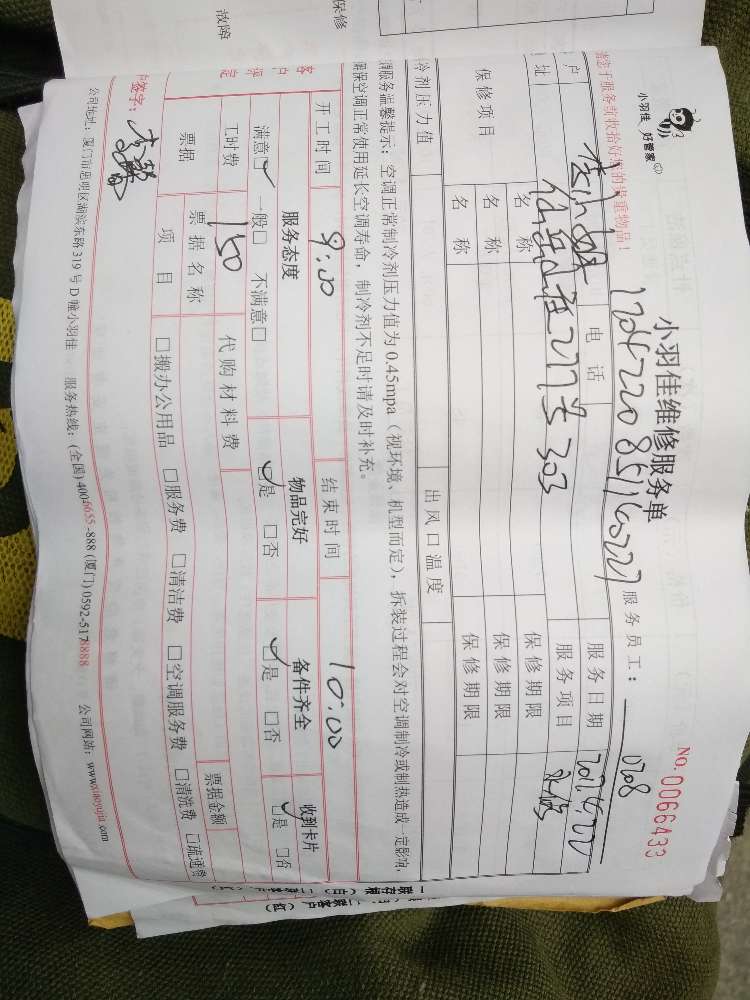 保修
故障
小羽佳 好管家
小羽佳维修服务单
No.0066433
请您于服务前收拾好您的贵重物品！
服务员工：
0208
户
电话
服务日期
址
303
服务项目
保修项目
名称
保修期限
名称
保修期限
名称
保修期限
冷剂压力值
出风口温度
调服务温馨提示：空调正常制冷剂压力值为0.45mpa（视环境、机型而定），拆装过程会对空调制冷或制热造成一定影响，
确保空调正常使用延长空调寿命，制冷剂不足时请及时补充。
开工时间
9:00
结束时间
10:00
客户
服务态度
物品完好
备件齐全
收到卡片
满意□ 一般□ 不满意□
□是 □否
□是 □否
□是 □否
工时费
150
代购材料费
票据
票据名称
票据金额
项目
□搬办公用品 □服务费 □清洁费 □空调服务费 □清洗费 □疏通费
户签字：
公司地址：厦门市思明区湖滨东路319号D幢小羽佳 服务热线：(全国)4004655-888 (厦门)0592-5178888 公司网站：www.xiaoyujia.com